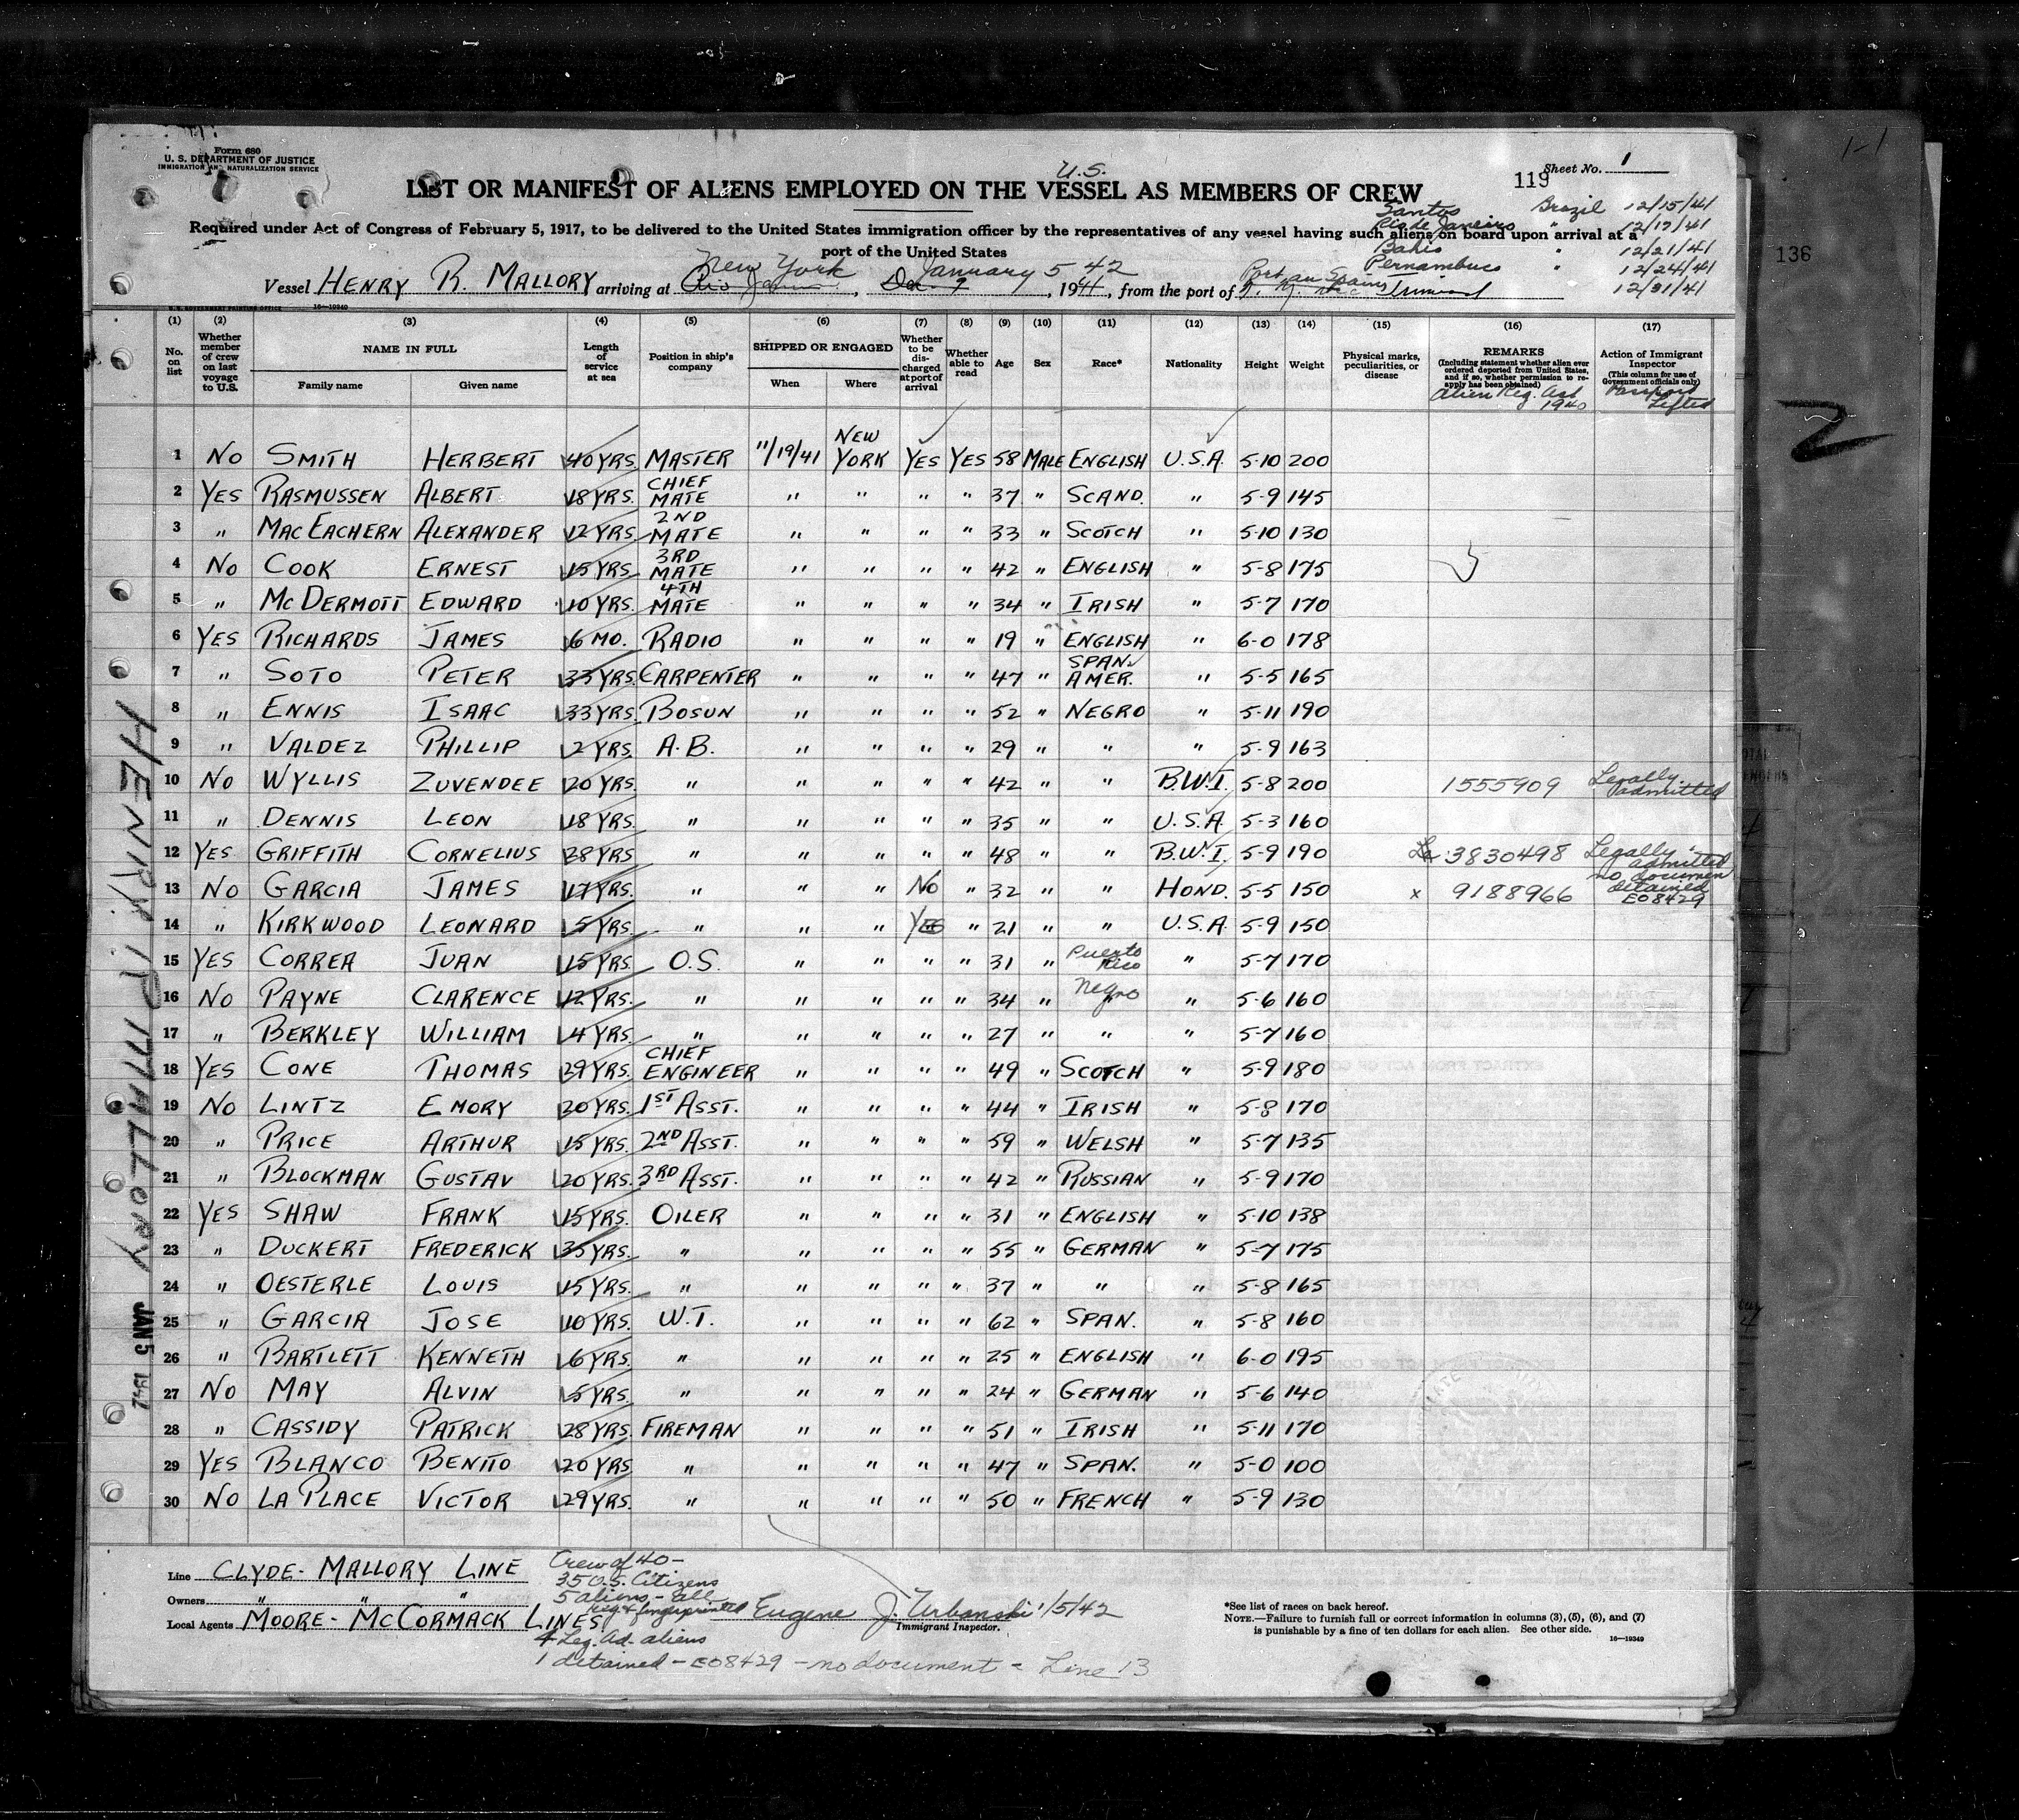 Form 680
U. S. DEPARTMENT OF JUSTICE
IMMIGRATION AND NATURALIZATION SERVICE
U.S.
119
Sheet No. 1
LIST OR MANIFEST OF ALIENS EMPLOYED ON THE VESSEL AS MEMBERS OF CREW
Santos Brazil 12/15/41
Rio de Janeiro " 12/17/41
Bahia " 12/21/41
Pernambuco " 12/24/41
12/31/41
Required under Act of Congress of February 5, 1917, to be delivered to the United States immigration officer by the representatives of any vessel having such aliens on board upon arrival at a
port of the United States
Vessel HENRY R. MALLORY arriving at New York, January 5 1942, from the port of Port au Spain Trinidad
16—19349
(1) (2) (3) (4) (5) (6) (7) (8) (9) (10) (11) (12) (13) (14) (15) (16) (17)
No. on list
Whether member of crew on last voyage to U.S.
NAME IN FULL
Family name
Given name
Length of service at sea
Position in ship's company
SHIPPED OR ENGAGED
When
Where
Whether to be discharged at port of arrival
Whether able to read
Age
Sex
Race*
Nationality
Height
Weight
Physical marks, peculiarities, or disease
REMARKS
(Including statement whether alien ever ordered deported from United States, and if so, whether permission to reapply has been obtained)
Alien Reg. Act 1940
Action of Immigrant Inspector
(This column for use of Government officials only)
Passport Lifted
1 NO SMITH HERBERT 40 YRS. MASTER 11/19/41 NEW YORK YES YES 58 MALE ENGLISH U.S.A. 5-10 200
2 YES RASMUSSEN ALBERT 18 YRS. CHIEF MATE " " " " 37 " SCAND. " 5-9 145
3 " MACEACHERN ALEXANDER 12 YRS. 2ND MATE " " " " 33 " SCOTCH " 5-10 130
4 NO COOK ERNEST 15 YRS. 3RD MATE " " " " 42 " ENGLISH " 5-8 175
5 " MCDERMOTT EDWARD 10 YRS. 4TH MATE " " " " 34 " IRISH " 5-7 170
6 YES RICHARDS JAMES 6 MO. RADIO " " " " 19 " ENGLISH " 6-0 178
7 " SOTO PETER 33 YRS. CARPENTER " " " " 47 " SPAN. AMER. " 5-5 165
8 " ENNIS ISAAC 33 YRS. BOSUN " " " " 52 " NEGRO " 5-11 190
9 " VALDEZ PHILLIP 2 YRS. A.B. " " " " 29 " " " 5-9 163
10 NO WYLLIS ZUVENDEE 20 YRS. " " " " " 42 " " B.W.I. 5-8 200 1555909 Legally admitted
11 " DENNIS LEON 18 YRS. " " " " " 35 " " U.S.A. 5-3 160
12 YES GRIFFITH CORNELIUS 38 YRS " " " " " 48 " " B.W.I. 5-9 190 3830498 Legally admitted
13 NO GARCIA JAMES 17 YRS. " " " NO " 32 " " HOND. 5-5 150 x 9188966 no document detained E08429
14 " KIRKWOOD LEONARD 5 YRS. " " " YES " 21 " " U.S.A. 5-9 150
15 YES CORREA JUAN 15 YRS. O.S. " " " " 31 " Puerto Rico " 5-7 170
16 NO PAYNE CLARENCE 12 YRS. " " " " " 34 " Negro " 5-6 160
17 " BERKLEY WILLIAM 4 YRS. " " " " " 27 " " " 5-7 160
18 YES CONE THOMAS 29 YRS. CHIEF ENGINEER " " " " 49 " SCOTCH " 5-9 180
19 NO LINTZ EMORY 20 YRS. 1ST ASST. " " " " 44 " IRISH " 5-8 170
20 " PRICE ARTHUR 15 YRS. 2ND ASST. " " " " 59 " WELSH " 5-7 135
21 " BLOCKMAN GUSTAV 20 YRS. 3RD ASST. " " " " 42 " RUSSIAN " 5-9 170
22 YES SHAW FRANK 15 YRS. OILER " " " " 31 " ENGLISH " 5-10 138
23 " DUCKERT FREDERICK 35 YRS. " " " " " 55 " GERMAN " 5-7 175
24 " OESTERLE LOUIS 15 YRS. " " " " " 37 " " " 5-8 165
25 " GARCIA JOSE 10 YRS. W.T. " " " " 62 " SPAN. " 5-8 160
26 " BARTLETT KENNETH 6 YRS. " " " " " 25 " ENGLISH " 6-0 195
27 NO MAY ALVIN 5 YRS. " " " " " 24 " GERMAN " 5-6 140
28 " CASSIDY PATRICK 28 YRS. FIREMAN " " " " 51 " IRISH " 5-11 170
29 YES BLANCO BENITO 20 YRS " " " " " 47 " SPAN. " 5-0 100
30 NO LA PLACE VICTOR 29 YRS. " " " " " 50 " FRENCH " 5-9 130
HENRY R MALLORY
JAN 5 1942
Line CLYDE-MALLORY LINE
Owners " " "
Local Agents MOORE-MCCORMACK LINES
Crew of 40 -
35 U.S. Citizens
5 aliens - all
reg & fingerprinted
4 Leg. Ad. aliens
1 detained - E08429 - no document - Line 13
Eugene J. Urbanski 1/5/42
Immigrant Inspector.
*See list of races on back hereof.
NOTE.—Failure to furnish full or correct information in columns (3), (5), (6), and (7)
is punishable by a fine of ten dollars for each alien. See other side.
16—19349
136
2
1-1